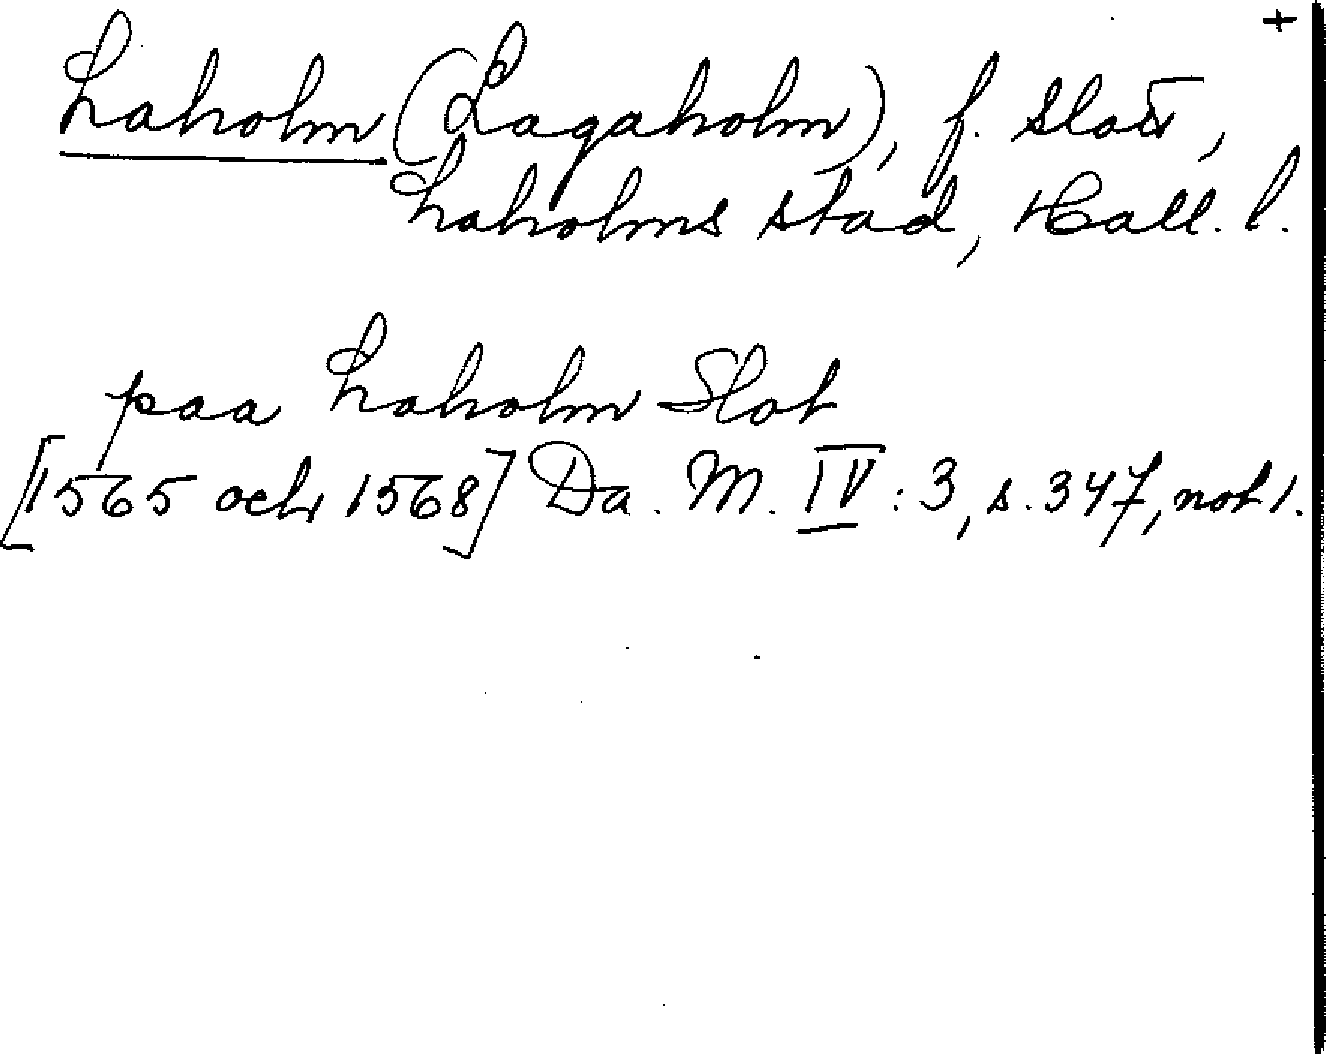 +
Laholm (Lagaholm), f. slott,
Laholms stad, Hall. l.
paa Laholm Slot
[1565 och 1568] Da. M. IV : 3, s. 347, not 1.